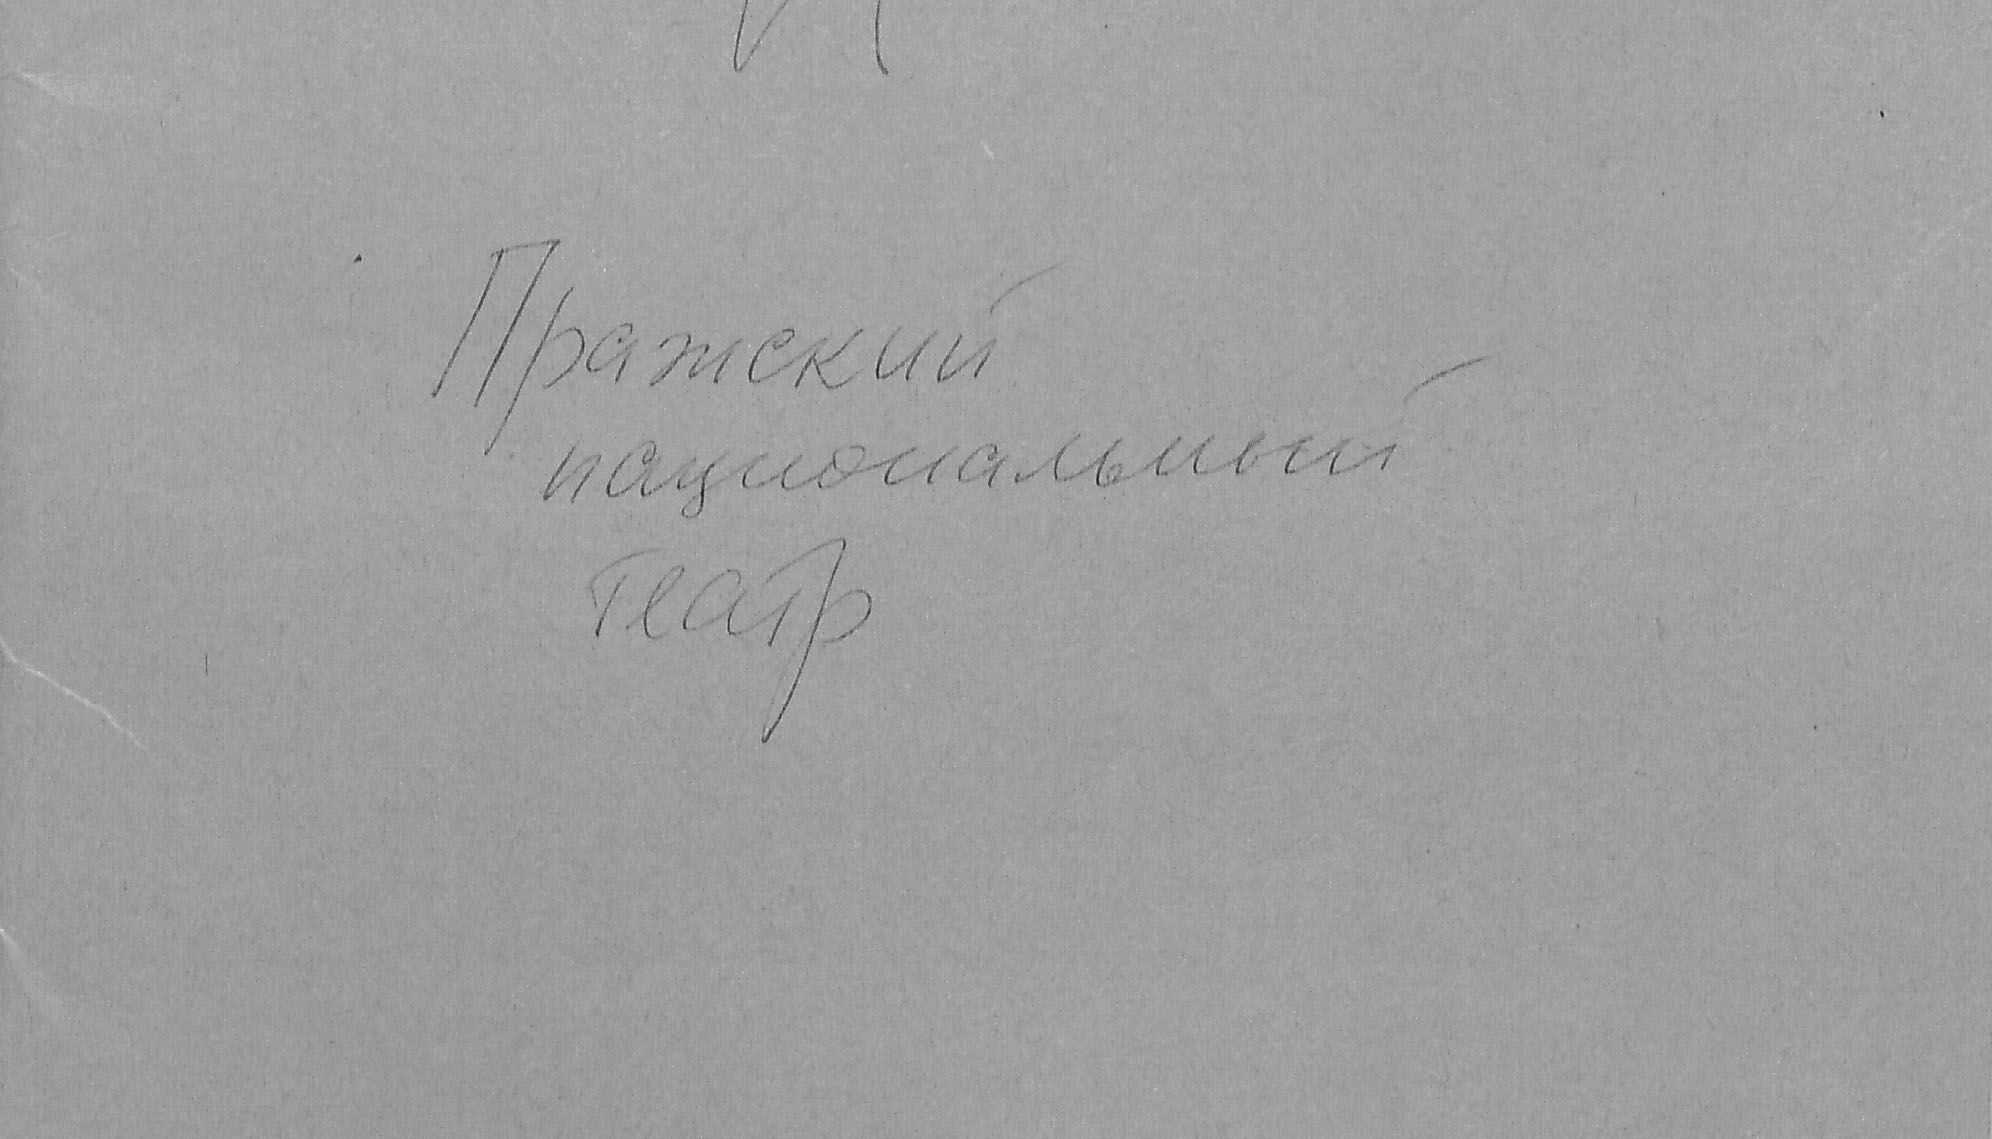 Пражский
национальный
театр